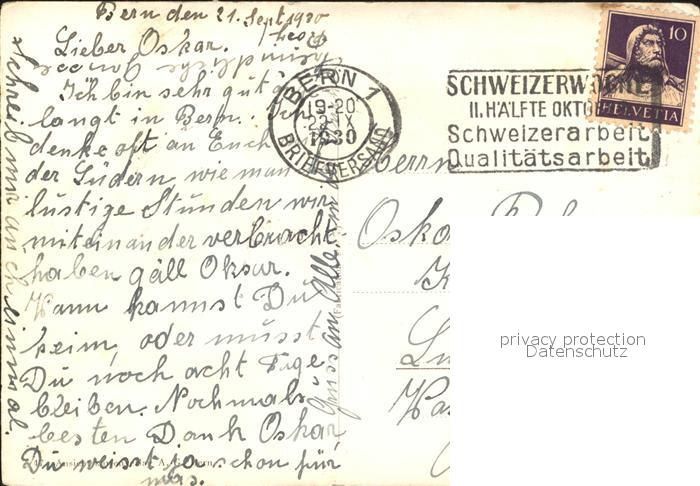 Bern den 21. Sept 1930
Lieber Oskar.
Ich bin sehr gut
langt in Bern.
denke oft an Euch
der Südern, wie man
lustige Stunden wir
miteinander verbracht
haben gäll Oksur.
Wann kannst Du
heim, oder musst
Du noch acht Tage
bleiben. Nochmals
besten Dank Oskar
Du weisst ja schon für
was.
Schreib mir auch einmal.
Gruss an Alle
BERN 1
19-20
IX
1930
BRIEFVERSAND
SCHWEIZERWOCHE
II. HÄLFTE OKTO
Schweizerarbeit
Qualitätsarbeit
10
HELVETIA
Herrn
Oskar
privacy protection
Datenschutz